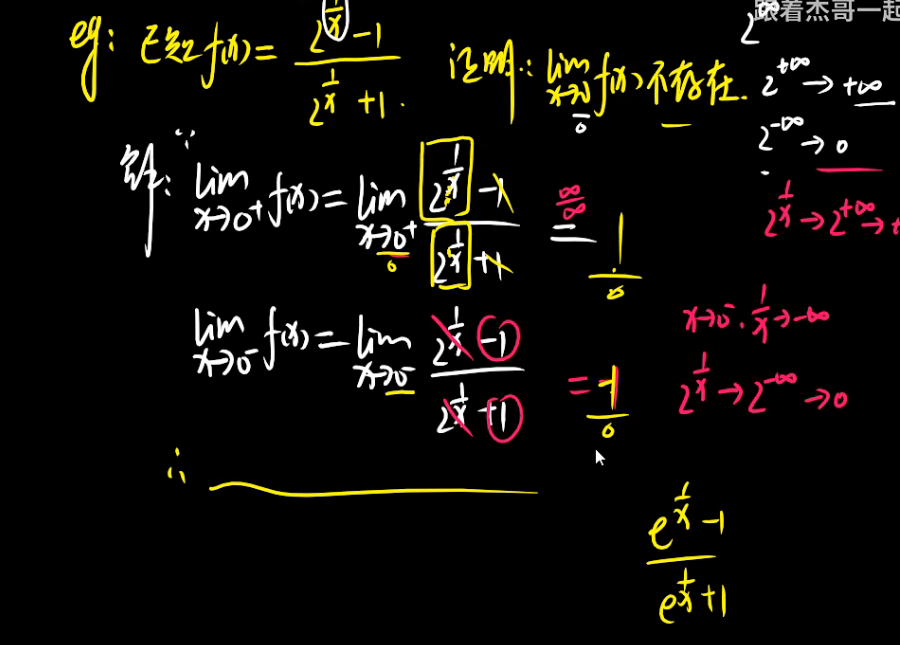 跟着杰哥一起
eg: 已知 f(x) = (2^(1/x) - 1)/(2^(1/x) + 1). 证明: lim x→0 f(x) 不存在.
2^∞
2^(+∞) → +∞
2^(-∞) → 0
2^(1/x) → 2^(+∞) → +
解: ∵ lim x→0⁺ f(x) = lim x→0⁺ (2^(1/x) - 1)/(2^(1/x) + 1) ∞/∞ = 1
x→0⁻. 1/x → -∞
lim x→0⁻ f(x) = lim x→0⁻ (2^(1/x) - 1)/(2^(1/x) + 1) = -1
2^(1/x) → 2^(-∞) → 0
∴
(e^(1/x) - 1)/(e^(1/x) + 1)